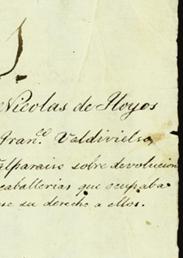 Nicolas de Hoyos
Fran.co Valdivielso
Valparaiso sobre devolucion
caballerias que ocupaba
su derecho a ellos.